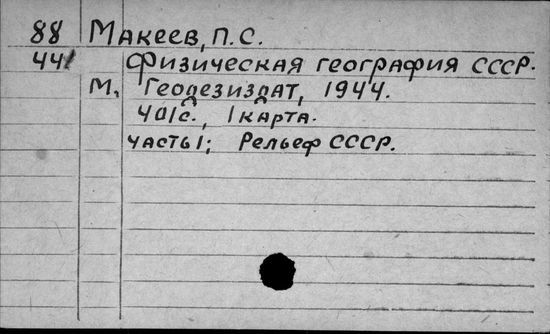 88 Макеев, П.С.
441 Физическая география СССР.
М, Геодезиздат, 1944.
401с., 1 карта.
часть 1; Рельеф СССР.